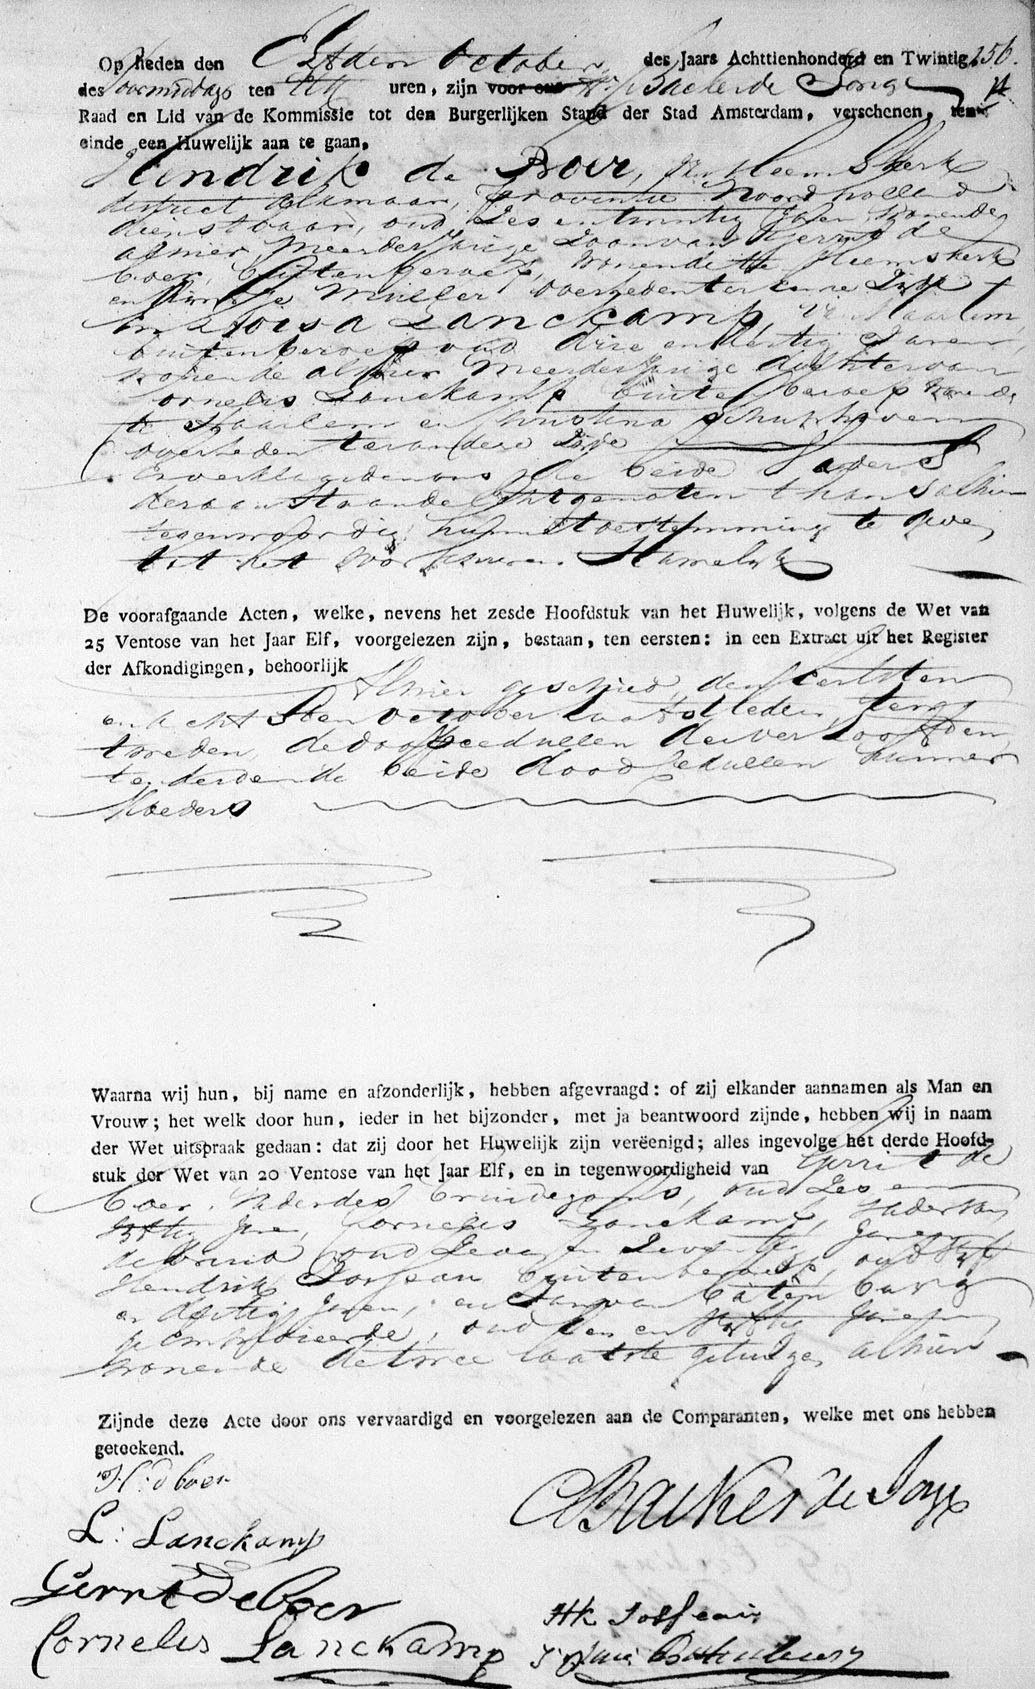 Op heden den Elfden October des Jaars Achttienhonderd en Twintig 256.
des voormiddags ten Elf uren, zijn voor ons Backer de Jonge
Raad en Lid van de Kommissie tot den Burgerlijken Stand der Stad Amsterdam, verschenen, ten
einde een Huwelijk aan te gaan,
Hendrik de Boer, van Heemskerk
district Alkmaar, provintie Noordholland
dienstbaar, oud Zes en twintig Jaren, wonende
alhier, meerderjarige Zoon van Gerrit de
boer, buiten beroep, wonende te Heemskerk
en Muller overleden ter eenre Zijde
en Loisa Lanckamp, van Haarlem
buiten beroep oud drie en dertig Jaren,
wonende alhier meerderjarige dochter van
Cornelis Lanckamp buiten beroep wonende
te Haarlem en Christina
overleden ter andere Zijde
En verklaarden ons de beide Vaders
der aanstaande Echtgenoten thans alhier
tegenwoordig hunne toestemming te geven
tot het voorschreven Huwelijk
De voorafgaande Acten, welke, nevens het zesde Hoofdstuk van het Huwelijk, volgens de Wet van
25 Ventose van het Jaar Elf, voorgelezen zijn, bestaan, ten eersten: in een Extract uit het Register
der Afkondigingen, behoorlijk
Alhier geschied, den eersten
en achtsten october laatstleden, ten
tweeden, de doopcedullen der verloofden,
ten derden de beide doodcedullen hunner
Moeders
Waarna wij hun, bij name en afzonderlijk, hebben afgevraagd: of zij elkander aannamen als Man en
Vrouw; het welk door hun, ieder in het bijzonder, met ja beantwoord zijnde, hebben wij in naam
der Wet uitspraak gedaan: dat zij door het Huwelijk zijn verëenigd; alles ingevolge het derde Hoofd-
stuk der Wet van 20 Ventose van het Jaar Elf, en in tegenwoordigheid van Gerrit de
boer, Vader des bruidegoms, oud Zes en
Jaren, Cornelis Lanckamp, Vader van
de bruid oud Zeven en Zeventig Jaren
Hendrik buiten beroep, oud Vyf
en dertig Jaren, en Jan van Batenburg
geemploieerde, oud en Jaren
wonende de twee laatste getuigen alhier
Zijnde deze Acte door ons vervaardigd en voorgelezen aan de Comparanten, welke met ons hebben
geteekend.
H: d boer
Backer de Jonge
L: Lanckamp
Gerrit de boer
Hk
Cornelis Lanckamp
Batenburg